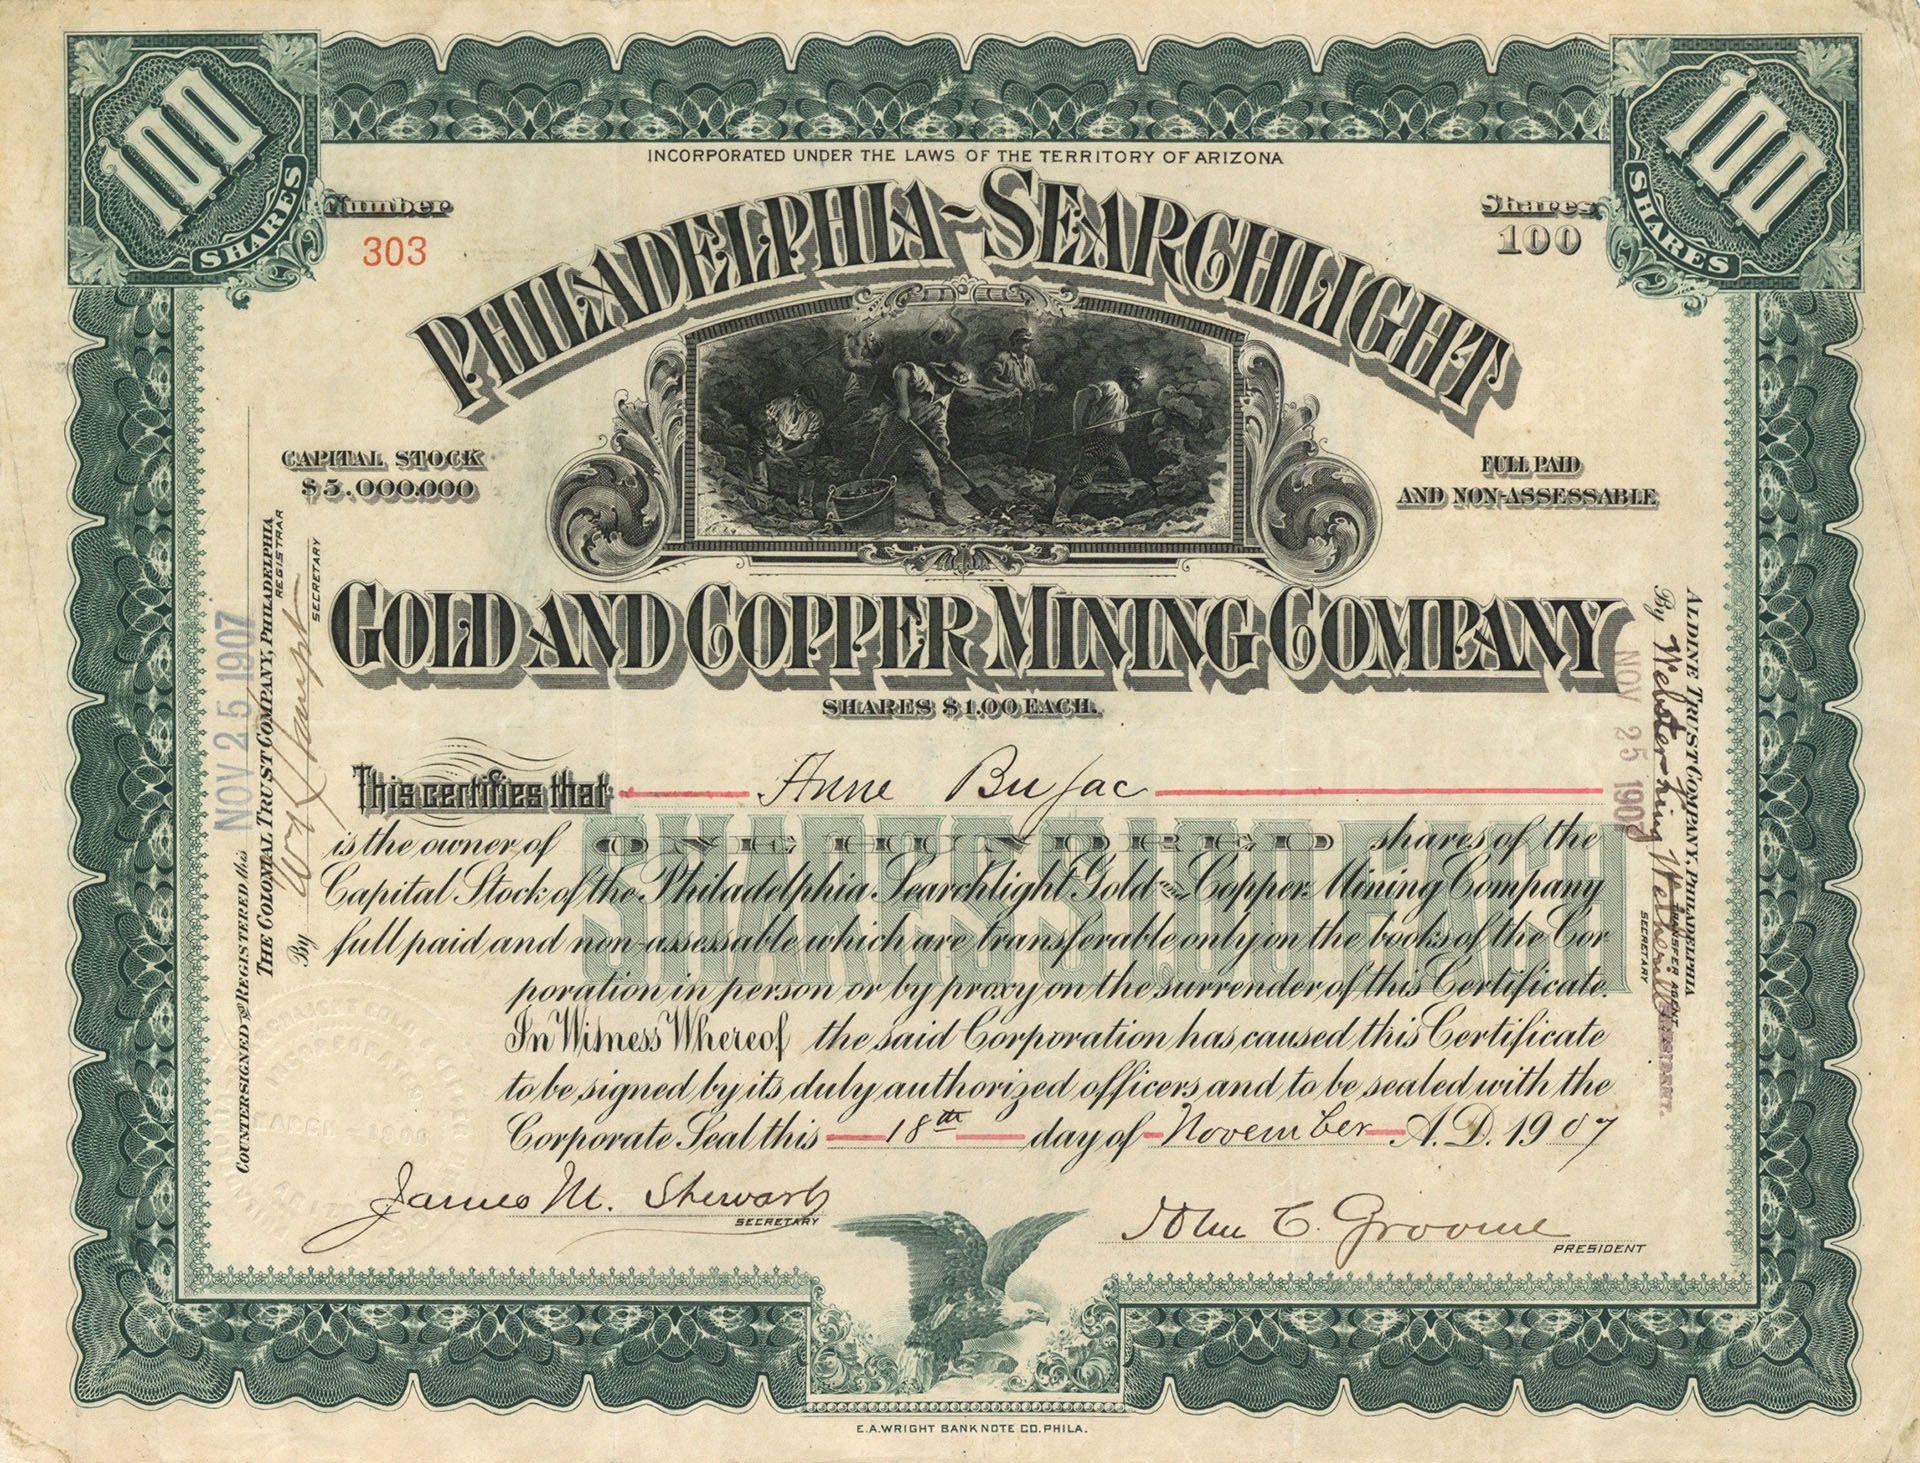 100
SHARES
100
SHARES
INCORPORATED UNDER THE LAWS OF THE TERRITORY OF ARIZONA
Number
303
Shares
100
PHILADELPHIA-SEARCHLIGHT
CAPITAL STOCK
$5.000.000
FULL PAID
AND NON-ASSESSABLE
GOLD AND COPPER MINING COMPANY
SHARES $1.00 EACH.
This certifies that Anne Bujac
is the owner of ONE HUNDRED shares of the
Capital Stock of the Philadelphia Searchlight Gold and Copper Mining Company
full paid and non-assessable which are transferable only on the books of the Cor
poration in person or by proxy on the surrender of this Certificate.
In Witness Whereof the said Corporation has caused this Certificate
to be signed by its duly authorized officers and to be sealed with the
Corporate Seal this 18th day of November A.D. 1907
SHARES $1.00 EACH
James M. Stewart
SECRETARY
John C. Groome
PRESIDENT
COUNTERSIGNED and REGISTERED this
NOV 25 1907
THE COLONIAL TRUST COMPANY, PHILADELPHIA
REGISTRAR
By
SECRETARY
ALDINE TRUST COMPANY, PHILADELPHIA
TRANSFER AGENT
By Webster King
SECRETARY
NOV 25 1907
E.A.WRIGHT BANK NOTE CO. PHILA.